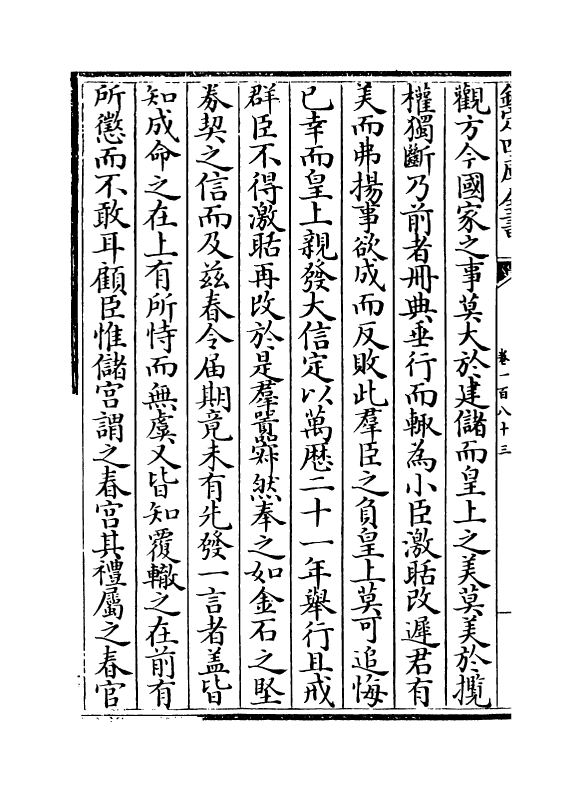 欽定四庫全書
卷一百八十三
觀方今國家之事莫大於建儲而皇上之美莫美於攬
權獨斷乃前者冊典垂行而輙為小臣激聒改遲君有
美而弗揚事欲成而反敗此羣臣之負皇上莫可追悔
已幸而皇上親發大信定以萬歴二十一年舉行且戒
群臣不得激聒再改於是羣囂寂然奉之如金石之堅
劵契之信而及兹春令届期竟未有先發一言者盖皆
知成命之在上有所恃而無虞又皆知覆轍之在前有
所懲而不敢耳顧臣惟儲宫謂之春宫其禮屬之春官